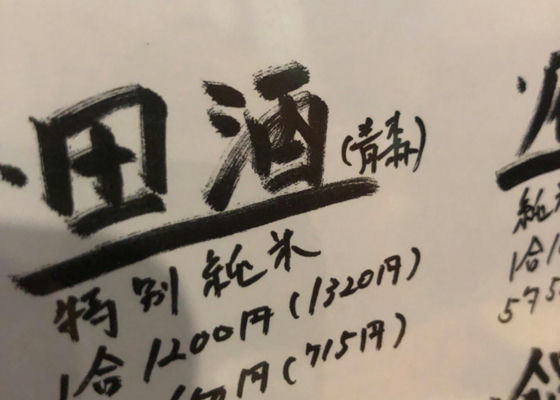 田酒(青森)
特別純米
1合1200円(1320円)
円(715円)
純
1合1
575